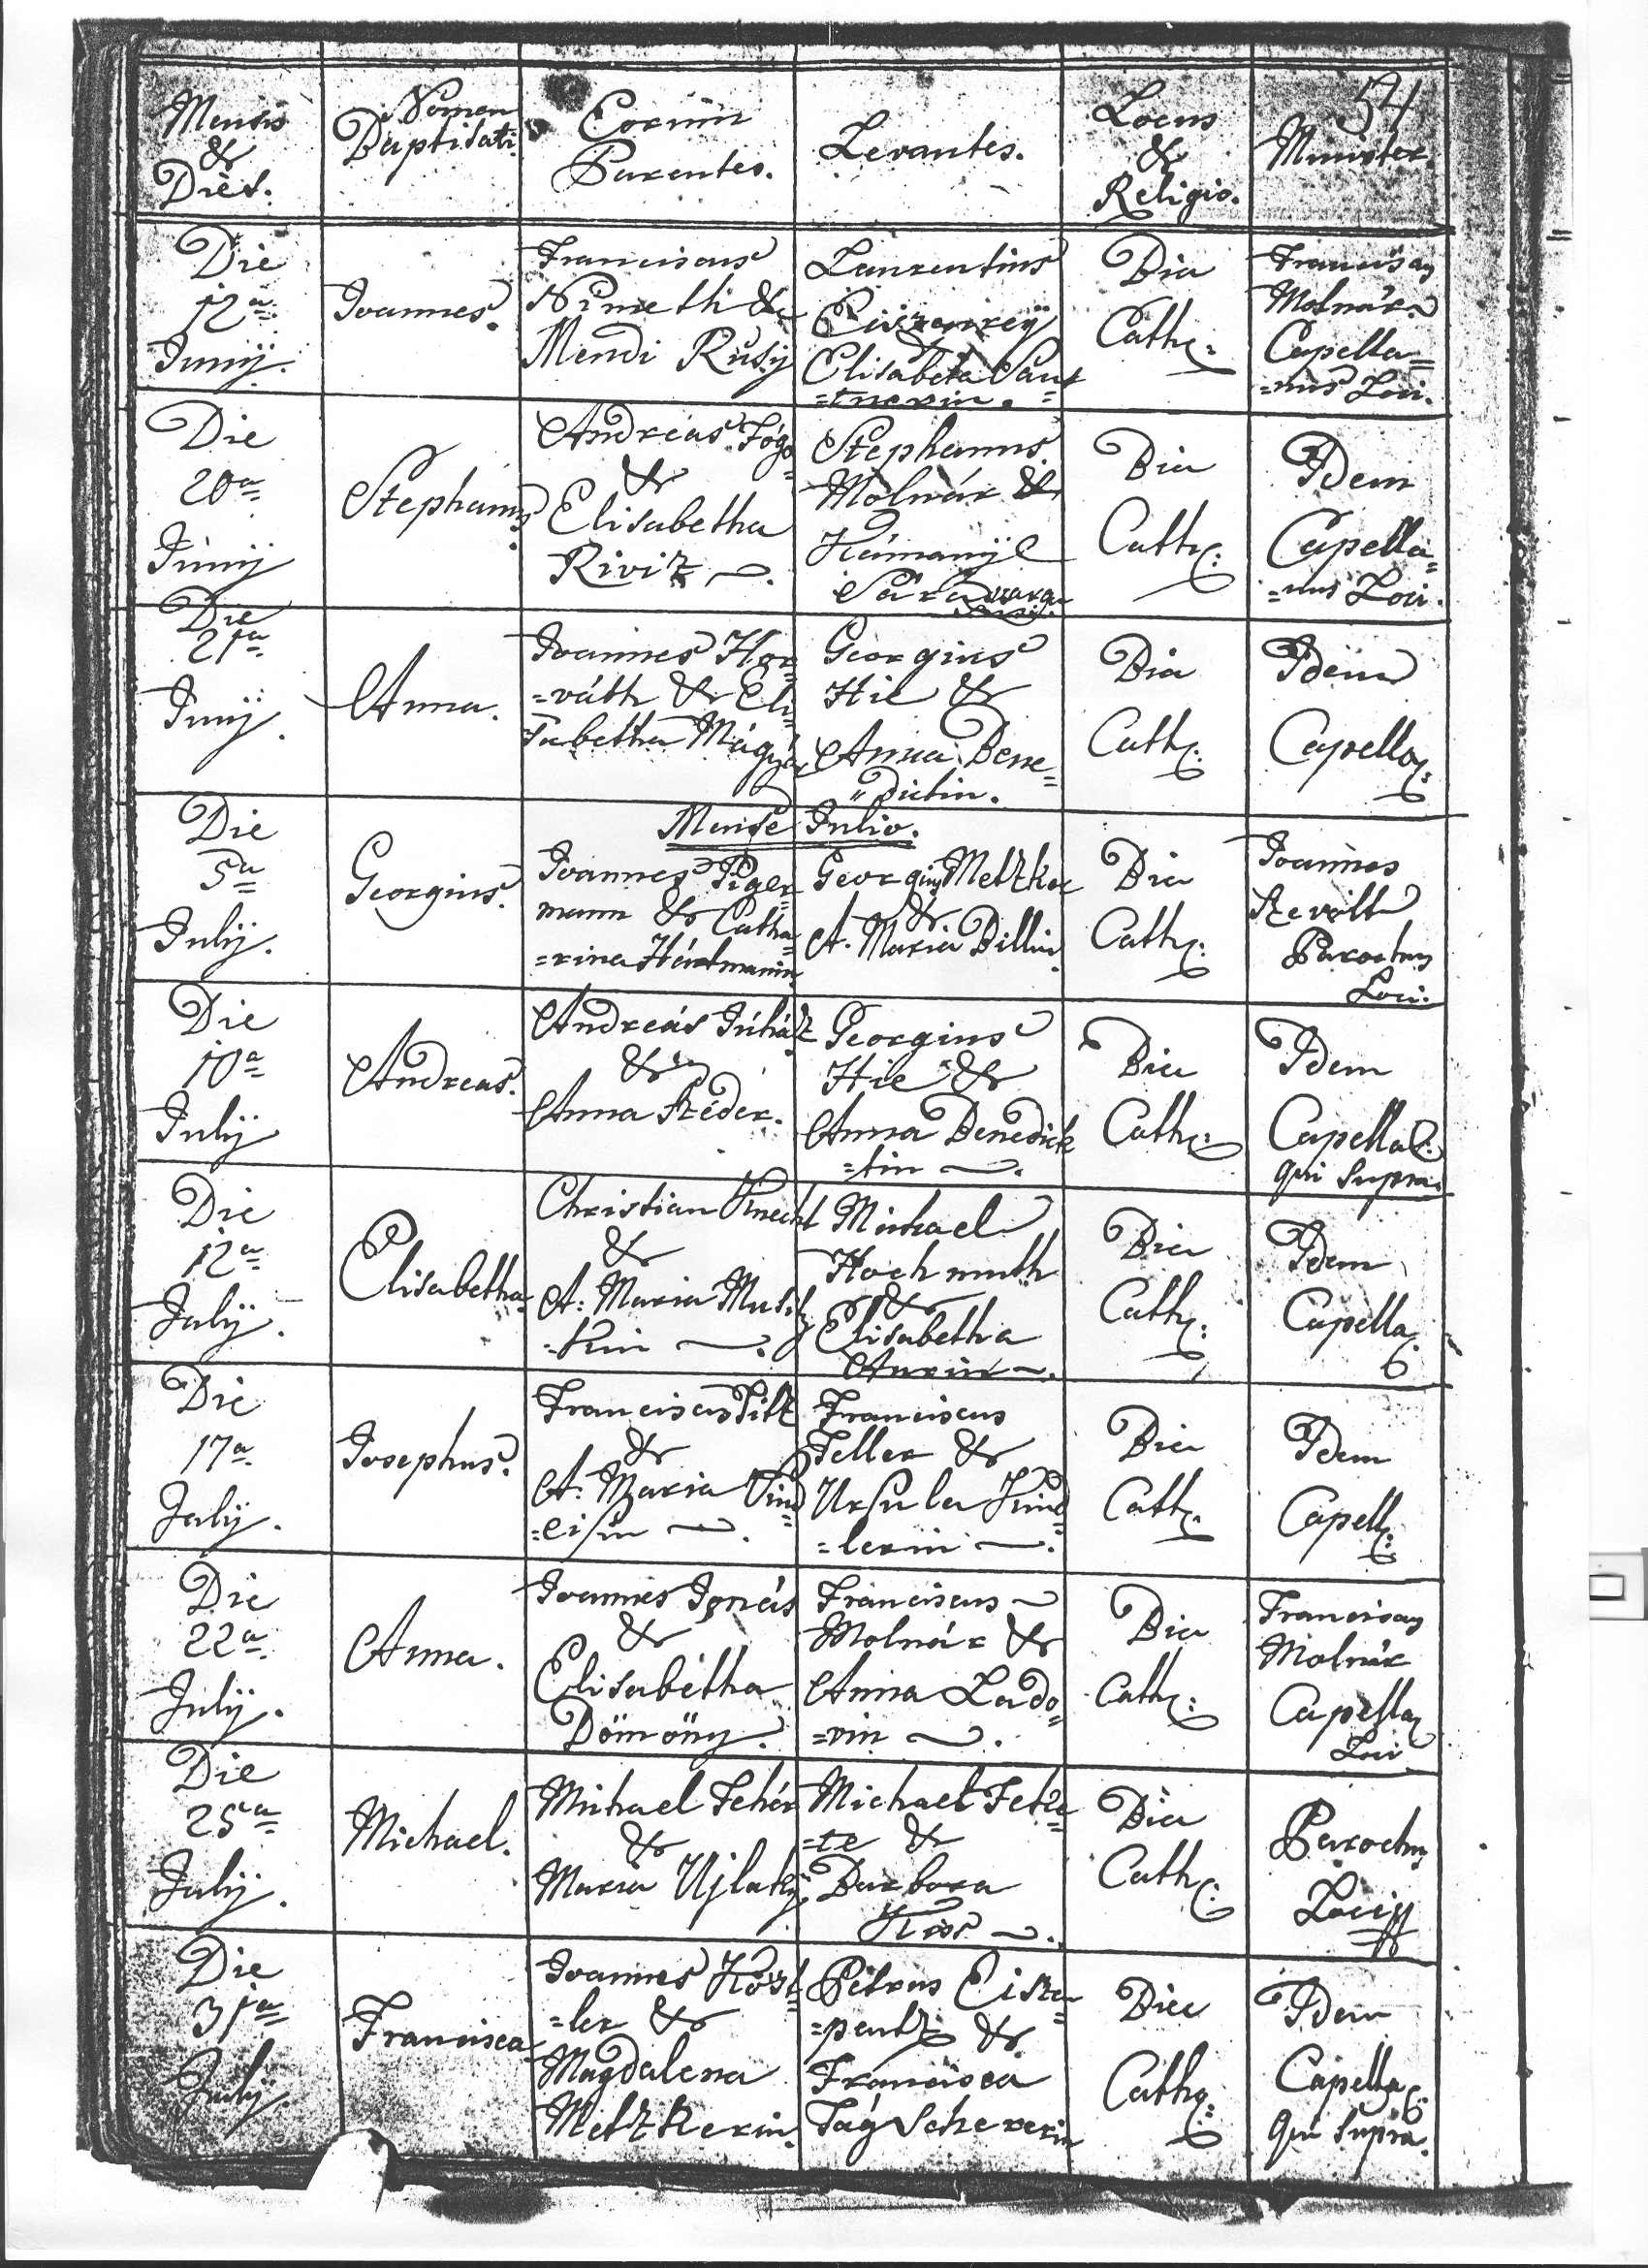 54
Mensis
&
Dies.
Nomen
Baptisati.
Eorum
Parentes.
Levantes.
Locus
&
Religio.
Minister.
Die
12a
Junij.
Joannes.
Franciscus
Nimeth &
Mendi Rusy
Laurentius
Elisabeta San
=tnerin.
Bia
Cath:
Franciscus
Molnár
Capella=
=nus Loci.
Die
20a
Junij
Stephanus.
Andreas Fógo
&
Elisabetha
Rivit
Stephanus
Molnár &
Sára
Bia
Cath:
Idem
Capella=
=nus Loci.
Die
21a
Junij.
Anna.
Joannes Hor=
=váth & Eli=
sabetha Magyar
Georgius
Hie &
Anna Bene=
dictin.
Bia
Cath:
Idem
Capella:
Mense Julio.
Die
5a
Julij.
Georgius.
Joannes Piger=
mann & Catha=
=rina Hartmanin
Georgius Metzker
&
A. Maria Billin
Bia
Cath:
Joannes
Revolt
Parochus
Loci.
Die
10a
Julij
Andreas.
Andreás Juhász
&
Anna Szeder.
Georgius
Hie &
Anna Benedick
=tin
Bia
Cath:
Idem
Capella:
qui supra.
Die
12a
Julij.
Elisabetha
Christian Knecht
&
A: Maria Musil
=kin
Michael
Hochmuth
&
Elisabetha
Aurin
Bia
Cath:
Idem
Capella
Die
17a
Julij.
Josephus.
Franciscus Piltz
&
A: Maria Vind=
=eisin
Franciscus
Feller &
Ursula Kind=
=lerin
Bia
Cath:
Idem
Capell:
Die
22a
Julij.
Anna.
Joannes Ignás
&
Elisabetha
Dömöny.
Franciscus
Molnár &
Anna Lado=
=rin
Bia
Cath:
Franciscus
Molnár
Capella
Loci
Die
25a
Julij.
Michael.
Michael Fehér
&
Maria Ujlaky
Michael Feke=
=te &
Barbara
Kiss
Bia
Cath:
Parochus
Loci
Die
31a
Julij.
Francisca
Joannes Köst=
=ler &
Magdalena
Metzkerin.
Petrus Eisen=
=peutz &
Francisca
Tágschererin
Bia
Cath:
Idem
Capella
Qui supra.